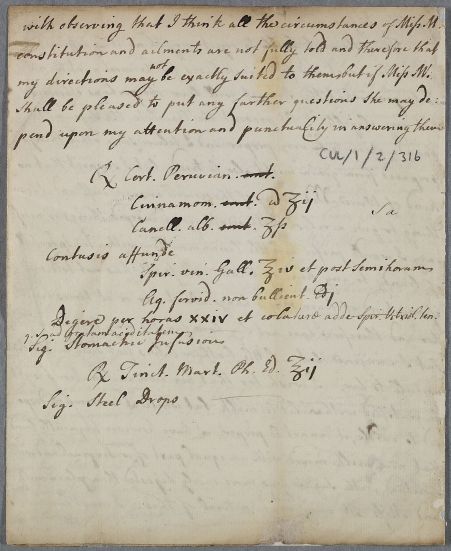 with observing that I think all the circumstances of Miss. W.
constitution and ailments are not fully told and therefore that
my directions may not be exactly suited to them but if Miss W.
shall be pleased to put any farther questions She may de-
pend upon my attention and punctuality in answering them
CUL/1/2/316
℞ Cort. Peruvian.
Cinnamom. a ʒij
Sa
Canell. alb. ʒſs
Contusis affunde
Spir. vin. Gall. ℥iv et post semihoram
Aq. fervid. non bullient.
Degere per horas XXIV et colaturæ adde Spir. Vitriol. ten.
q. s. ad gratam aciditatem
Sig. Stomachic Infusion
℞ Tinct. Mart. Ph. Ed. ℥ij
Sig. Steel Drops